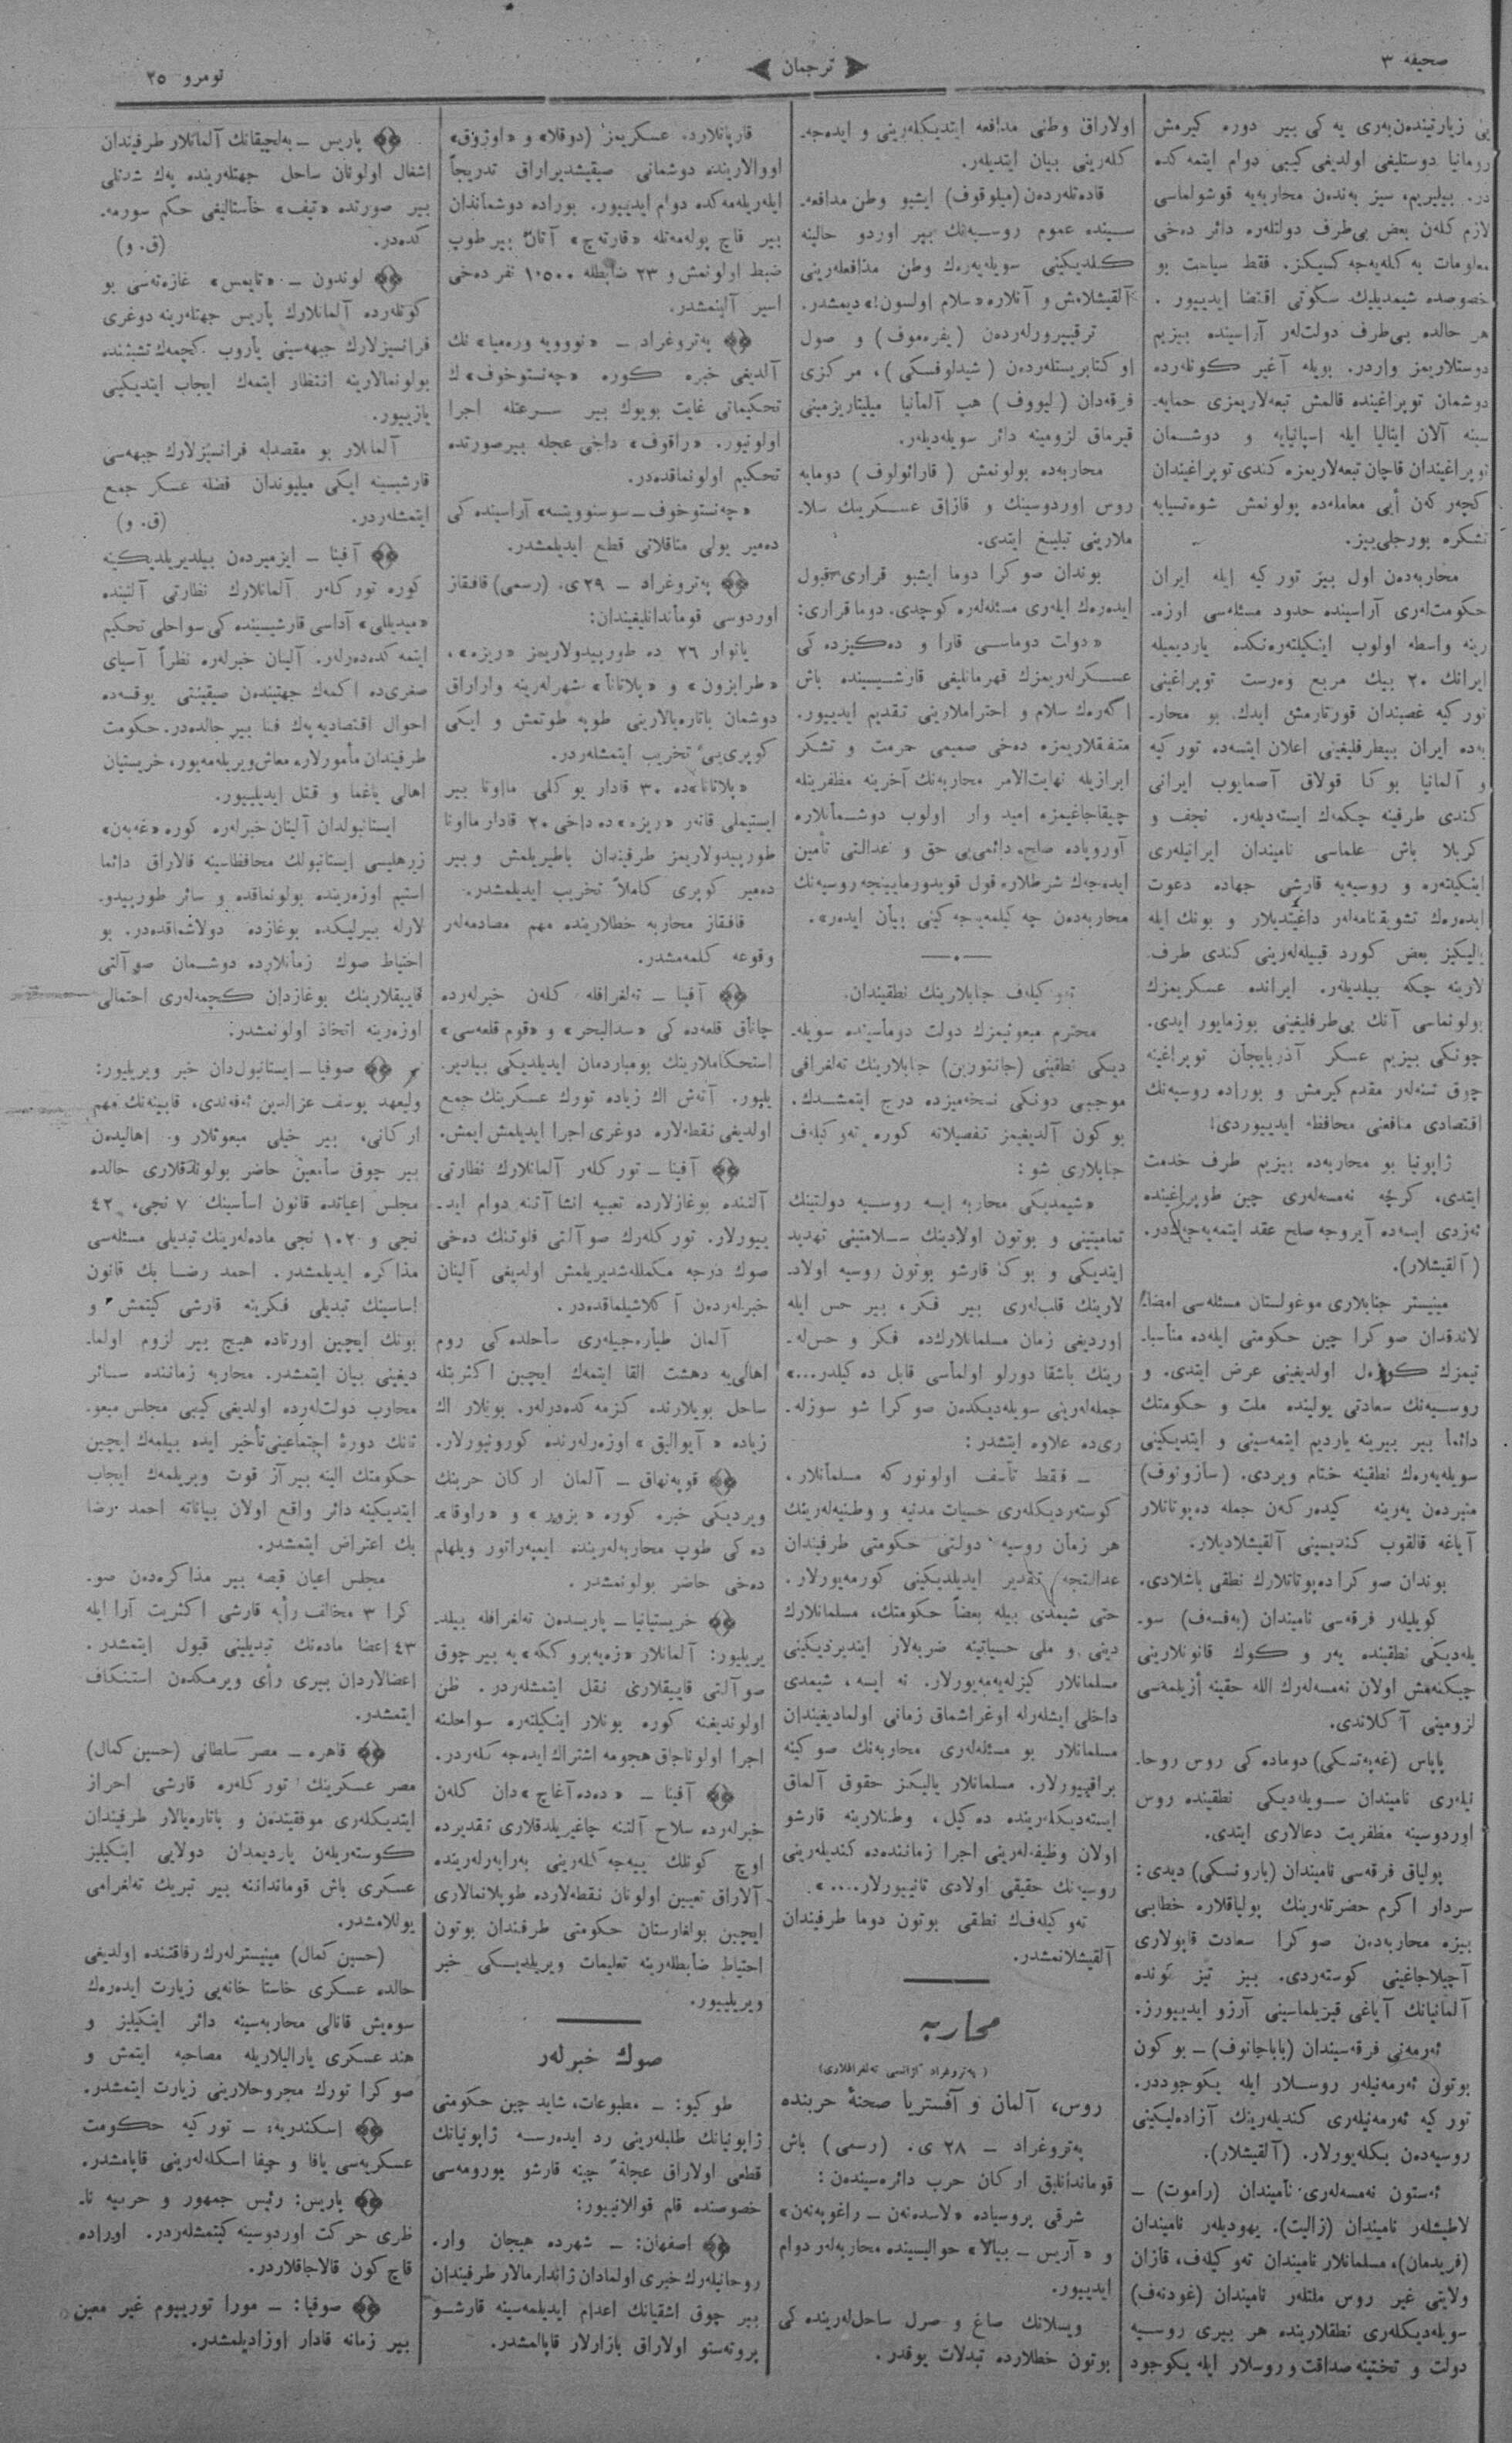 صحیفه ۳
ترجمان
نومرو ۲۵
یٔی زیارتیندن‌به‌ری یه کی بیر دوره کیرمش
رومانیا دوستلیغی اولدیغی کیبی دوام ایتمه کده
در. بیلیریم، سیز به‌ندن محاربه‌یه قوشولماسی
لازم کله‌ن بعض بی‌طرف دولتلره دائر ده‌خی
معلومات به کله‌یه‌جه کسیکز. فقط سیاست بو
خصوصده شیمدیلیك سکوتی اقتضا ایدییور.
هر حالده بی‌طرف دولت‌لر آراسینده بیزیم
دوستلاریمز واردر. بویله آغیر کونله‌رده
دوشمان توپراغینده قالمش تبعه‌لاریمزی حمایه‌ـ
سینه آلان ایتالیا ایله اسپانیایه و دوشمان
توپراغیندان قاچان تبعه‌لاریمزه کندی توپراغیندان
کچه‌ر که‌ن أیی معامله‌ده بولونمش شوه‌تسیایه
تشکره بورجلی‌یيز.
محاربه‌دن اول بیز تورکیه ایله ایران
حکومت‌له‌ری آراسینده حدود مسئله‌سی اوزه‌ـ
رینه واسطه اولوب اینکیلته‌ره‌نکده یاردیمیله
ایرانك ۲۰ بیك مربع ؤه‌رست توپراغینی
تورکیه غصبندان قورتارمش ایدك. بو محارـ
به‌ده ایران بیطرفلیغینی اعلان ایتسه‌ده تورکیه
و آلمانیا بوکا قولاق آصمایوب ایرانی
کندی طرفینه چکمه‌ك ایسته‌دیله‌ر. نجف و
کربلا باش علماسی نامیندان ایرانیله‌ری
اینکیلته‌ره و روسیه‌یه قارشی جهاده دعوت
ایده‌ره‌ك تشویقنامه‌له‌ر داغیتدیلار و بونك ایله
یالیکیز بعض کورد قبیله‌له‌رینی کندی طرف
لارینه چکه بیلدیله‌ر. ایرانده عسکریمزك
بولونماسی آنك بی‌طرفلیغینی بوزمایور ایدی.
چونکی بیزیم عسکر آذربایجان توپراغینه
چوق سنه‌له‌ر مقدم کیرمش و بوراده روسیه‌نك
اقتصادی منافعنی محافظه ایدییوردی!
ژاپونیا بو محاربه‌ده بیزیم طرف خدمت
ایتدی، کرچه نه‌مسه‌له‌ری چین طوپراغینده
ئه‌زدی ایسه‌ده آیروجه صلح عقد ایتمه‌یه‌جکدر.
(آلقیشلار).
مینیستر جنابلاری موغولستان مسئله‌سی امضاـ
لاندقدان صوکرا چین حکومتی ایله‌ده مناسباـ
تیمزك کوزه‌ل اولدیغینی عرض ایتدی. و
روسیه‌نك سعادتی یولینده ملت و حکومتك
دائما بیر بیرینه یاردیم ایتمه‌سینی و ایتدیکینی
سویله‌یه‌ره‌ك نطقینه ختام ویردی. (سازونوف)
منبردن یه‌رینه کیده‌رکه‌ن جمله ده‌پوتاتلار
آیاغه قالقوب کندیسینی آلقیشلادیلار.
بوندان صوکرا ده‌پوتاتلارك نطقی باشلادی.
کویلیله‌ر فرقه‌سی نامیندان (یه‌فسه‌ف) سوـ
یله‌دیکی نطقینده یه‌ر و کوك قانونلارینی
چیکنه‌مش اولان نه‌مسه‌له‌رك الله حقینه أزیلمه‌سی
لزومینی آکلاندی.
پاپاس (غه‌په‌تسکی) دوماده کی روس روحاـ
نیله‌ری نامیندان سویله‌دیکی نطقینده روس
اوردوسینه مظفریت دعالاری ایتدی.
پولیاق فرقه‌سی نامیندان (یارونسکی) دیدی:
سردار اکرم حضرتله‌رینك پولیاقلاره خطابی
بیزه محاربه‌دن صوکرا سعادت قاپولاری
آچیلاجاغینی کوسته‌ردی. بیز تیز کونده
آلمانیانك آیاغی قیزیلماسینی آرزو ایدییورز.
ئه‌رمه‌نی فرقه‌سیندان (پاپاجانوف) ـ بو کون
بوتون ئه‌رمه‌نیله‌ر روسلار ایله یکوجوددر.
تورکیه ئه‌رمه‌نیله‌ری کندیله‌رینك آزاده‌لیکینی
روسیه‌دن بکله‌یورلار. (آلقیشلار).
ئه‌ستون نه‌مسه‌له‌ری نامیندان (راموت) ـ
لاطیشله‌ر نامیندان (زالیت). یهودیله‌ر نامیندان
(فریدمان)، مسلمانلار نامیندان ته‌وکیله‌ف، قازان
ولایتی غیر روس ملتله‌ر نامیندان (غودنه‌ف)
سویله‌دیکله‌ری نطقلارینده هر بیری روسیه
دولت و تختینه صداقت و روسلار ایله یکوجود
اولاراق وطنی مدافعه ایتدیکله‌رینی و ایده‌جه‌ـ
کله‌رینی بیان ایتدیله‌ر.
قاده‌تله‌ردن (میلوقوف) ایشبو وطن مدافعه‌ـ
سینده عموم روسیه‌نك بیر اوردو حالینه
کلدیکینی سویله‌یه‌ره‌ك وطن مدافعله‌رینی
آلقیشلامش و آنلاره «سلام اولسون!» دیمشدر.
ترقیپرورله‌ردن (یفره‌موف) و صول
اوکتابریستله‌ردن (شیدلوفسکی)، مرکزی
فرقه‌دان (لیووف) هپ آلمانیا میلیتاریزمینی
قیرماق لزومینه دائر سویله‌دیله‌ر.
محاربه‌ده بولونمش (قارائولوف) دومایه
روس اوردوسینك و قازاق عسکرینك سلاـ
ملارینی تبلیغ ایتدی.
بوندان صوکرا دوما ایشبو قراری قبول
ایده‌ره‌ك ایله‌ری مسئله‌له‌ره کوچدی. دوما قراری:
«دولت دوماسی قارا و ده‌کیزده کی
عسکرله‌ریمزك قهرمانلیغی قارشیسینده باش
اگه‌ره‌ك سلام و احتراملارینی تقدیم ایدییور.
متفقلاریمزه ده‌خی صمیمی حرمت و تشکر
ابرازیله نهایت‌الامر محاربه‌نك آخرینه مظفریتله
چیقاجاغیمزه امید وار اولوب دوشمانلاره
آوروپاده صلح دائمی‌یی حق و عدالتی تأمین
ایده‌جه‌ك شرطلاره قول قویدورمایینجه روسیه‌نك
محاربه‌دن چه‌کیلمه‌یه‌جه کینی بیان ایده‌ر».
ته‌وکیله‌ف جنابلارینك نطقیندان.
محترم مبعوثیمزك دولت دوماسینده سویله‌ـ
دیکی نطقینی (جانتورین) جنابلارینك ته‌لغرافی
موجبی دونکی نسخه‌میزده درج ایتمشدك.
بوکون آلدیغیمز تفصیلاته کوره ته‌وکیله‌ف
جنابلاری شو:
«شیمدیکی محاربه ایسه روسیه دولتینك
تمامیتینی و بوتون اولادینك سلامتینی تهدید
ایتدیکی و بوکا قارشو بوتون روسیه اولادـ
لارینك قلب‌له‌ری بیر فکر، بیر حس ایله
اوردیغی زمان مسلمانلارکده فکر و حس‌له‌ـ
رینك باشقا دورلو اولماسی قابل ده‌کیلدر...»
جمله‌له‌رینی سویله‌دیکدن صوکرا شو سوزله‌ـ
ری‌ده علاوه ایتشدر:
ـ فقط تأسف اولونورکه مسلمانلار،
کوسته‌ردیکله‌ری حسیات مدنیه و وطنیه‌له‌رینك
هر زمان روسیه دولتی حکومتی طرفیندان
عدالتجه تقدیر ایدیلدیکینی کورمه‌یورلار.
حتی شیمدی بیله بعضاً حکومتك، مسلمانلارك
دینی و ملی حسیاتینه ضربه‌لار ایندیردیکینی
مسلمانلار کیزله‌یه‌مه‌یورلار. نه ایسه، شیمدی
داخلی ایشله‌رله اوغراشماق زمانی اولمادیغیندان
مسلمانلار بو مسئله‌له‌ری محاربه‌نك صوکینه
براقییورلار. مسلمانلار یالیکز حقوق آلماق
ایسته‌دیکله‌رینده ده‌کیل، وطنلارینه قارشو
اولان وظیفه‌له‌رینی اجرا زماننده‌ده کندیله‌رینی
روسیه‌نك حقیقی اولادی تانییورلار....».
ته‌وکیله‌فك نطقی بوتون دوما طرفیندان
آلقیشلانمشدر.
محاربه
(په‌تروغراد آژانسی ته‌لغرافلاری)
روس، آلمان و آفستریا صحنهٔ حربنده
په‌تروغراد ـ ۲۸ ی. (رسمی) باش
قوماندانلیق ارکان حرب دائره‌سیندن:
شرقی پروسیاده «لاسده‌نه‌ن ـ راغوپه‌نه‌ن»
و «آریس ـ بیالا» حوالیسینده محاربه‌له‌ر دوام
ایدییور.
ویسلانك صاغ و صول ساحل‌له‌رینده کی
بوتون خطلارده تبدلات یوقدر.
قارپاتلارده عسکریمز (دوقلا» و «اوزوق»
اووالارینده دوشمانی صیقیشدیراراق تدریجاً
ایله‌ریله‌مه‌کده دوام ایدییور. بوراده دوشماندان
بیر قاچ پوله‌مه‌تله «قارته‌چ» آتان بیر طوپ
ضبط اولونمش و ۲۳ ضابطله ۱۰۵۰۰ نفر ده‌خی
اسیر آلینمشدر.
په‌تروغراد ـ «نوویه وره‌میا» نك
آلدیغی خبره کوره «چه‌نستوخوف»ك
تحکیماتی غایت بویوك بیر سرعتله اجرا
اولونیور. «راقوف» داخی عجله بیرصورتده
تحکیم اولونماقده‌در.
«چه‌نستوخوف ـ سوسنوویتسه» آراسینده کی
ده‌میر یولی مناقلاتی قطع ایدیلمشدر.
په‌تروغراد ـ ۲۹ ی. (رسمی) قافقاز
اوردوسی قوماندانلیغیندان:
یانوار ۲۶ ده طورپیدولاریمز «ریزه»،
«طرابزون» و «پلاتانا» شهرله‌رینه واراراق
دوشمان باتاره‌یالارینی طوپه طوتمش و ایکی
کوپری‌یی تخریب ایتمشله‌ردر.
«پلاتانا»ده ۳۰ قادار یوکلی مااونا بیر
ایستیملی قاته‌ر «ریزه»ده داخی ۲۰ قادار مااونا
طورپیدولاریمز طرفیندان باطیریلمش و بیر
ده‌میر کوپری کاملاً تخریب ایدیلمشدر.
قافقاز محاربه خطلارینده مهم مصادمه‌له‌ر
وقوعه کلمه‌مشدر.
آفینا ـ ته‌لغرافله کله‌ن خبرله‌رده
چاناق قلعه‌ده کی «سدالبحر» و «قوم قلعه‌سی»
استحکاملارینك بومباردمان ایدیلدیکی بیلدیرـ
یلیور. آته‌ش اك زیاده تورك عسکرینك جمع
اولدیغی نقطه‌لاره دوغری اجرا ایدیلمش ایمش.
آفینا ـ تورکله‌ر آلمانلارك نظارتی
آلتنده بوغازلارده تعبیه انشا آتنه دوام ایدـ
ییورلار. تورکله‌رك صو آلتی فلوتنك ده‌خی
صوك درجه مکمللشدیریلمش اولدیغی آلینان
خبرله‌ردن آکلاشیلماقده‌در.
آلمان طیاره‌جیله‌ری ساحلده کی روم
اهالی‌یه دهشت القا ایتمه‌ك ایچین اکثریتله
ساحل بویلارنده کزمه‌کده‌درله‌ر. بونلار اك
زیاده «آیوالیق» اوزه‌رله‌رنده کورونیورلار.
قوپه‌نهاق ـ آلمان ارکان حربنك
ویردیکی خبره کوره «بزور» و «راوقا»ـ
ده کی طوپ محاربه‌له‌رینده ایمپه‌راتور ویلهلم
ده‌خی حاضر بولونمشدر.
خریستیانیا ـ پاریسدن ته‌لغرافله بیلدـ
یریلیور: آلمانلار «زه‌یه‌بروککه»یه بیر چوق
صو آلتی قاییقلاری نقل ایتمشله‌ردر. ظن
اولوندیغنه کوره بونلار اینکیلته‌ره سواحلنه
اجرا اولوناجاق هجومه اشتراك ایده‌جه کله‌ردر.
آفینا ـ «ده‌ده آغاج»دان کله‌ن
خبرله‌رده سلاح آلتنه چاغیریلدقلاری تقدیرده
اوچ کونلك ییه‌جه کله‌رینی به‌رابه‌رله‌رینده
آلاراق تعیین اولونان نقطه‌لارده طوپلانمالاری
ایچین بولغارستان حکومتی طرفندان بوتون
احتیاط ضابطله‌رینه تعلیمات ویریلدیکی خبر
ویریلییور.
صوك خبرله‌ر
طوکیو: ـ مطبوعات، شاید چین حکومتی
ژاپونیانك طلبله‌رینی رد ایده‌رسه ژاپونیانك
قطعی اولاراق عجلةً چینه قارشو یورومه‌سی
خصوصنده قلم قوللانییور:
اصفهان: ـ شهرده هیجان وار.
روحانیله‌رك خبری اولمادان ژاندارمالار طرفیندان
بیر چوق اشقیانك اعدام ایدیلمه‌سینه قارشو
پروته‌ستو اولاراق بازارلار قاپالمشدر.
پاریس ـ به‌لچیقانك آلمانلار طرفیندان
اشغال اولونان ساحل جهتله‌رینده پك شدتلی
بیر صورتده «تیف» خاستالیغی حکم سورمه‌ـ
کده‌در. (ق. و)
لوندون ـ «تایمس» غازه‌ته‌سی بو
کونله‌رده آلمانلارك پاریس جهتله‌رینه دوغری
فرانسیزلارك جبهه‌سینی یاروب کچمه‌ك تشبثنده
بولونمالارینه انتظار ایتمه‌ك ایجاب ایتدیکینی
یازییور.
آلمانلار بو مقصدله فرانسیزلارك جبهه‌سی
قارشیسینه ایکی میلیوندان فضله عسکر جمع
ایتمشله‌ردر. (ق. و)
آفینا ـ ایزمیردن بیلدیریلدیکینه
کوره تورکله‌ر آلمانلارك نظارتی آلتینده
«میدیللی» آداسی قارشیسینده کی سواحلی تحکیم
ایتمه کده‌درله‌ر. آلینان خبرله‌ره نظراً آسیای
صغری‌ده اکمه‌ك جهتیندن صیقینتی یوقسه‌ده
احوال اقتصادیه پك فنا بیر حالده‌در. حکومت
طرفیندان مأمورلاره معاش ویریله‌مه‌یور، خریستیان
اهالی یاغما و قتل ایدیلییور.
ایستانبولدان آلینان خبرله‌ره کوره «غه‌به‌ن»
زرهلیسی ایستانبولك محافظاسینه قالاراق دائما
استیم اوزه‌رینده بولونماقده و سائر طورپیدوـ
لارله بیرلیکده بوغازده دولاشماقده‌در. بو
احتیاط صوك زمانلارده دوشمان صو آلتی
قاییقلارینك بوغازدان کچمه‌له‌ری احتمالی
اوزه‌رینه اتخاذ اولونمشدر.
صوفیا ـ ایستانبول‌دان خبر ویریلیور:
ولیعهد یوسف عزالدین ئه‌فه‌ندی، قابینه‌نك مهم
ارکانی، بیر خیلی مبعوثلار و اهالیدن
بیر چوق سامعین حاضر بولوندقلاری حالده
مجلس اعیانده قانون اساسینك ۷ نجی، ۴۲
نجی و ۱۰۲ نجی ماده‌له‌رینك تبدیلی مسئله‌سی
مذاکره ایدیلمشدر. احمد رضا بك قانون
اساسینك تبدیلی فکرینه قارشی کیتمش و
بونك ایچین اورتاده هیچ بیر لزوم اولماـ
دیغینی بیان ایتمشدر. محاربه زماننده سائر
محارب دولت‌له‌رده اولدیغی کیبی مجلس مبعوـ
ثانك دورهٔ اجتماعینی تأخیر ایده بیلمه‌ك ایچین
حکومتك الینه بیر آز قوت ویریلمه‌ك ایجاب
ایتدیکینه دائر واقع اولان بیاناته احمد رضا
بك اعتراض ایتمشدر.
مجلس اعیان قیصه بیر مذاکره‌دن صوـ
کرا ۳ مخالف رأیه قارشی اکثریت آرا ایله
۴۳ اعضا ماده‌نك تبدیلینی قبول ایتمشدر.
اعضالاردان بیری رأی ویرمکدن استنکاف
ایتمشدر.
قاهره ـ مصر سلطانی (حسین کمال)
مصر عسکرینك تورکله‌ره قارشی احراز
ایتدیکله‌ری موفقیتدن و باتاره‌یالار طرفیندان
کوسته‌ریله‌ن یاردیمدان دولایی اینکیلیز
عسکری باش قوماندانته بیر تبریك ته‌لغرامی
یوللامشدر.
(حسین کمال) مینیسترله‌رك رفاقتنده اولدیغی
حالده عسکری خاستا خانه‌یی زیارت ایده‌ره‌ك
سوه‌یش قانالی محاربه‌سینه دائر اینکیلیز و
هند عسکری یارالیلاریله مصاحبه ایتمش و
صوکرا تورك مجروحلارینی زیارت ایتمشدر.
اسکندریه: ـ تورکیه حکومت
عسکریه‌سی یافا و حیفا اسکله‌له‌رینی قاپامشدر.
پاریس: رئیس جمهور و حربیه ناـ
ظری حرکت اوردوسینه کیتمشله‌ردر. اوراده
قاچ کون قالاجاقلاردر.
صوفیا: ـ مورا توریوم غیر معین
بیر زمانه قادار اوزادیلمشدر.